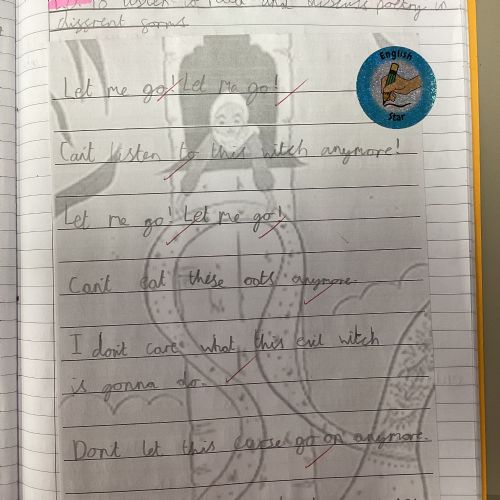 to listen to read and discuss poetry in
different forms
English
Star
Let me go! Let me go!
Can't listen to this witch anymore!
Let me go! Let me go!
Can't eat these oats anymore.
I don't care what this evil witch
is gonna do.
Dont let this curse go on anymore.